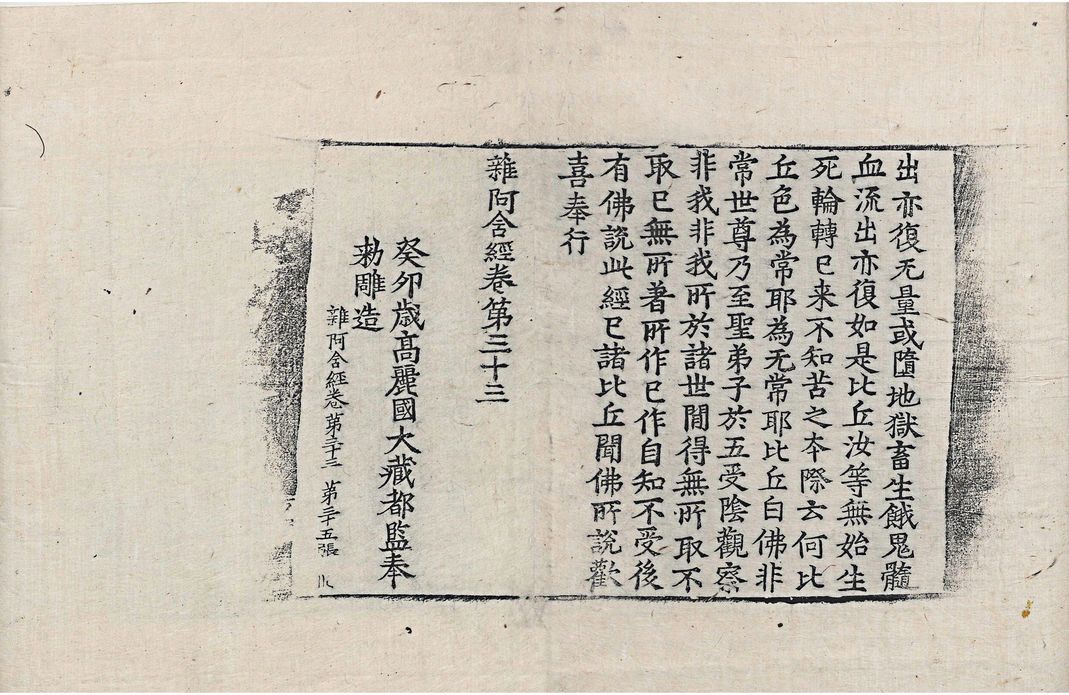 出亦復无量或墮地獄畜生餓鬼髓
血流出亦復如是比丘汝等無始生
死輪轉已来不知苦之夲際云何比
丘色為常耶為无常耶比丘白佛非
常世尊乃至聖弟子於五受陰觀察
非我非我所於諸世間得無所取不
取已無所著所作已作自知不受後
有佛說此經已諸比丘聞佛所說歡
喜奉行
雜阿含經卷第三十三
癸卯歳髙麗國大藏都監奉
勅雕造
雜阿含經卷第三十三 第二十五張